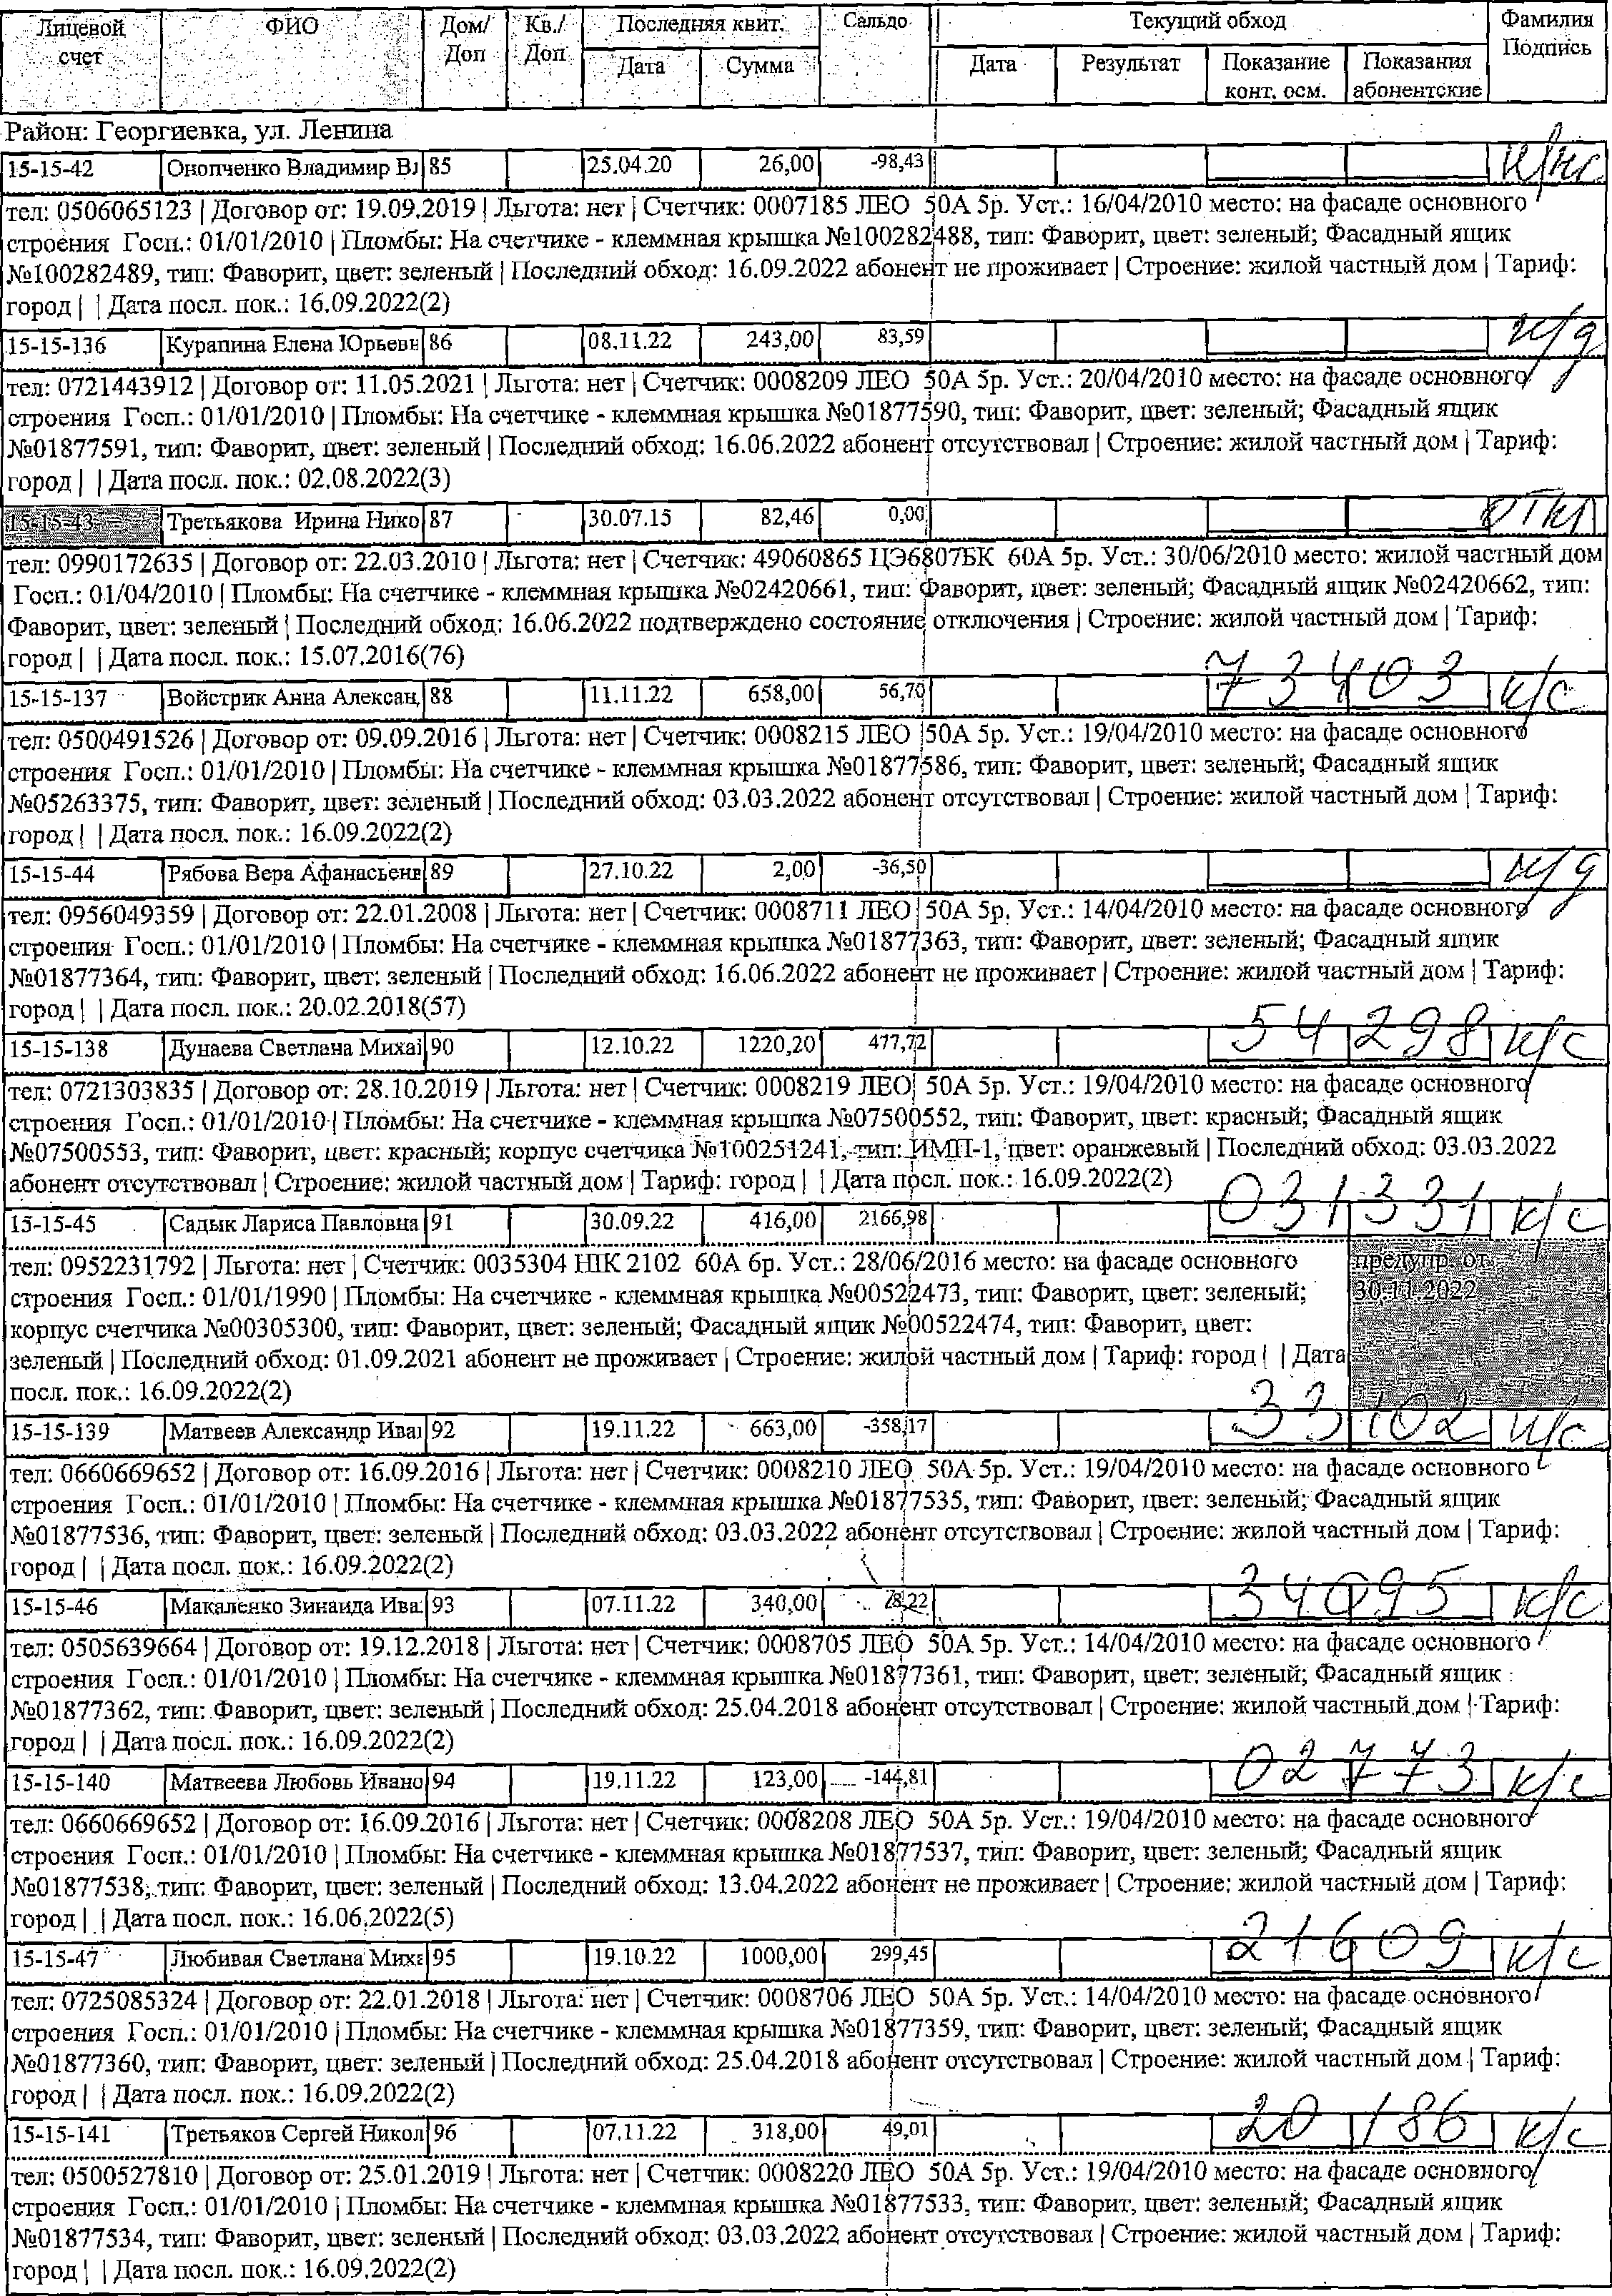 Лицевой счет ФИО Дом/Доп Кв./Доп Последняя квит. Сальдо Текущий обход Фамилия Подпись
Дата Сумма Дата Результат Показание конт. осм. Показания абонентские
Район: Георгиевка, ул. Ленина
15-15-42 Онопченко Владимир Вл 85 25.04.20 26,00 -98,43
тел: 0506065123 | Договор от: 19.09.2019 | Льгота: нет | Счетчик: 0007185 ЛЕО 50А 5р. Уст.: 16/04/2010 место: на фасаде основного
строения Госп.: 01/01/2010 | Пломбы: На счетчике - клеммная крышка №100282488, тип: Фаворит, цвет: зеленый; Фасадный ящик
№100282489, тип: Фаворит, цвет: зеленый | Последний обход: 16.09.2022 абонент не проживает | Строение: жилой частный дом | Тариф:
город | | Дата посл. пок.: 16.09.2022(2)
15-15-136 Курапина Елена Юрьевн 86 08.11.22 243,00 83,59 н/д
тел: 0721443912 | Договор от: 11.05.2021 | Льгота: нет | Счетчик: 0008209 ЛЕО 50А 5р. Уст.: 20/04/2010 место: на фасаде основного
строения Госп.: 01/01/2010 | Пломбы: На счетчике - клеммная крышка №01877590, тип: Фаворит, цвет: зеленый; Фасадный ящик
№01877591, тип: Фаворит, цвет: зеленый | Последний обход: 16.06.2022 абонент отсутствовал | Строение: жилой частный дом | Тариф:
город | | Дата посл. пок.: 02.08.2022(3)
15-15-43 Третьякова Ирина Нико 87 30.07.15 82,46 0,00 откл
тел: 0990172635 | Договор от: 22.03.2010 | Льгота: нет | Счетчик: 49060865 ЦЭ6807БК 60А 5р. Уст.: 30/06/2010 место: жилой частный дом
Госп.: 01/04/2010 | Пломбы: На счетчике - клеммная крышка №02420661, тип: Фаворит, цвет: зеленый; Фасадный ящик №02420662, тип:
Фаворит, цвет: зеленый | Последний обход: 16.06.2022 подтверждено состояние отключения | Строение: жилой частный дом | Тариф:
город | | Дата посл. пок.: 15.07.2016(76)
15-15-137 Войстрик Анна Алексан, 88 11.11.22 658,00 56,70 73403 к/с
тел: 0500491526 | Договор от: 09.09.2016 | Льгота: нет | Счетчик: 0008215 ЛЕО 50А 5р. Уст.: 19/04/2010 место: на фасаде основного
строения Госп.: 01/01/2010 | Пломбы: На счетчике - клеммная крышка №01877586, тип: Фаворит, цвет: зеленый; Фасадный ящик
№05263375, тип: Фаворит, цвет: зеленый | Последний обход: 03.03.2022 абонент отсутствовал | Строение: жилой частный дом | Тариф:
город | | Дата посл. пок.: 16.09.2022(2)
15-15-44 Рябова Вера Афанасьевн 89 27.10.22 2,00 -36,50 н/д
тел: 0956049359 | Договор от: 22.01.2008 | Льгота: нет | Счетчик: 0008711 ЛЕО 50А 5р. Уст.: 14/04/2010 место: на фасаде основного
строения Госп.: 01/01/2010 | Пломбы: На счетчике - клеммная крышка №01877363, тип: Фаворит, цвет: зеленый; Фасадный ящик
№01877364, тип: Фаворит, цвет: зеленый | Последний обход: 16.06.2022 абонент не проживает | Строение: жилой частный дом | Тариф:
город | | Дата посл. пок.: 20.02.2018(57)
15-15-138 Дунаева Светлана Михаі 90 12.10.22 1220,20 477,72 54298 к/с
тел: 0721303835 | Договор от: 28.10.2019 | Льгота: нет | Счетчик: 0008219 ЛЕО 50А 5р. Уст.: 19/04/2010 место: на фасаде основного
строения Госп.: 01/01/2010 | Пломбы: На счетчике - клеммная крышка №07500552, тип: Фаворит, цвет: красный; Фасадный ящик
№07500553, тип: Фаворит, цвет: красный; корпус счетчика №100251241, тип: ИМП-1, цвет: оранжевый | Последний обход: 03.03.2022
абонент отсутствовал | Строение: жилой частный дом | Тариф: город | | Дата посл. пок.: 16.09.2022(2)
15-15-45 Садык Лариса Павловна 91 30.09.22 416,00 2166,98 031331 к/с
тел: 0952231792 | Льгота: нет | Счетчик: 0035304 НІК 2102 60А 6р. Уст.: 28/06/2016 место: на фасаде основного предупр. от
строения Госп.: 01/01/1990 | Пломбы: На счетчике - клеммная крышка №00522473, тип: Фаворит, цвет: зеленый; 30.11.2022
корпус счетчика №00305300, тип: Фаворит, цвет: зеленый; Фасадный ящик №00522474, тип: Фаворит, цвет:
зеленый | Последний обход: 01.09.2021 абонент не проживает | Строение: жилой частный дом | Тариф: город | | Дата
посл. пок.: 16.09.2022(2)
15-15-139 Матвеев Александр Иваі 92 19.11.22 663,00 -358,17 33102 к/с
тел: 0660669652 | Договор от: 16.09.2016 | Льгота: нет | Счетчик: 0008210 ЛЕО 50А 5р. Уст.: 19/04/2010 место: на фасаде основного
строения Госп.: 01/01/2010 | Пломбы: На счетчике - клеммная крышка №01877535, тип: Фаворит, цвет: зеленый; Фасадный ящик
№01877536, тип: Фаворит, цвет: зеленый | Последний обход: 03.03.2022 абонент отсутствовал | Строение: жилой частный дом | Тариф:
город | | Дата посл. пок.: 16.09.2022(2)
15-15-46 Макаленко Зинаида Ива 93 07.11.22 340,00 34095 к/с
тел: 0505639664 | Договор от: 19.12.2018 | Льгота: нет | Счетчик: 0008705 ЛЕО 50А 5р. Уст.: 14/04/2010 место: на фасаде основного
строения Госп.: 01/01/2010 | Пломбы: На счетчике - клеммная крышка №01877361, тип: Фаворит, цвет: зеленый; Фасадный ящик
№01877362, тип: Фаворит, цвет: зеленый | Последний обход: 25.04.2018 абонент отсутствовал | Строение: жилой частный дом | Тариф:
город | | Дата посл. пок.: 16.09.2022(2)
15-15-140 Матвеева Любовь Ивано 94 19.11.22 123,00 -144,81 02773 к/с
тел: 0660669652 | Договор от: 16.09.2016 | Льгота: нет | Счетчик: 0008208 ЛЕО 50А 5р. Уст.: 19/04/2010 место: на фасаде основного
строения Госп.: 01/01/2010 | Пломбы: На счетчике - клеммная крышка №01877537, тип: Фаворит, цвет: зеленый; Фасадный ящик
№01877538, тип: Фаворит, цвет: зеленый | Последний обход: 13.04.2022 абонент не проживает | Строение: жилой частный дом | Тариф:
город | | Дата посл. пок.: 16.06.2022(5)
15-15-47 Любивая Светлана Миха 95 19.10.22 1000,00 299,45 21609 к/с
тел: 0725085324 | Договор от: 22.01.2018 | Льгота: нет | Счетчик: 0008706 ЛЕО 50А 5р. Уст.: 14/04/2010 место: на фасаде основного
строения Госп.: 01/01/2010 | Пломбы: На счетчике - клеммная крышка №01877359, тип: Фаворит, цвет: зеленый; Фасадный ящик
№01877360, тип: Фаворит, цвет: зеленый | Последний обход: 25.04.2018 абонент отсутствовал | Строение: жилой частный дом | Тариф:
город | | Дата посл. пок.: 16.09.2022(2)
15-15-141 Третьяков Сергей Никол 96 07.11.22 318,00 49,01 20186 к/с
тел: 0500527810 | Договор от: 25.01.2019 | Льгота: нет | Счетчик: 0008220 ЛЕО 50А 5р. Уст.: 19/04/2010 место: на фасаде основного
строения Госп.: 01/01/2010 | Пломбы: На счетчике - клеммная крышка №01877533, тип: Фаворит, цвет: зеленый; Фасадный ящик
№01877534, тип: Фаворит, цвет: зеленый | Последний обход: 03.03.2022 абонент отсутствовал | Строение: жилой частный дом | Тариф:
город | | Дата посл. пок.: 16.09.2022(2)